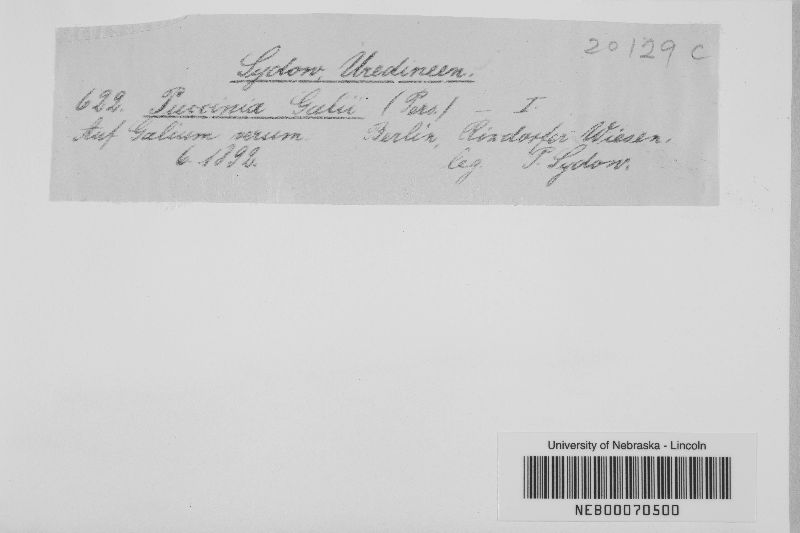 20129 C
Sydow, Uredineen.
622. Puccinia Galii (Pers.) — I.
Auf Galium verum. Berlin, Rixdorfer Wiesen.
6 1892. leg. P. Sydow.
University of Nebraska - Lincoln
NEB00070500